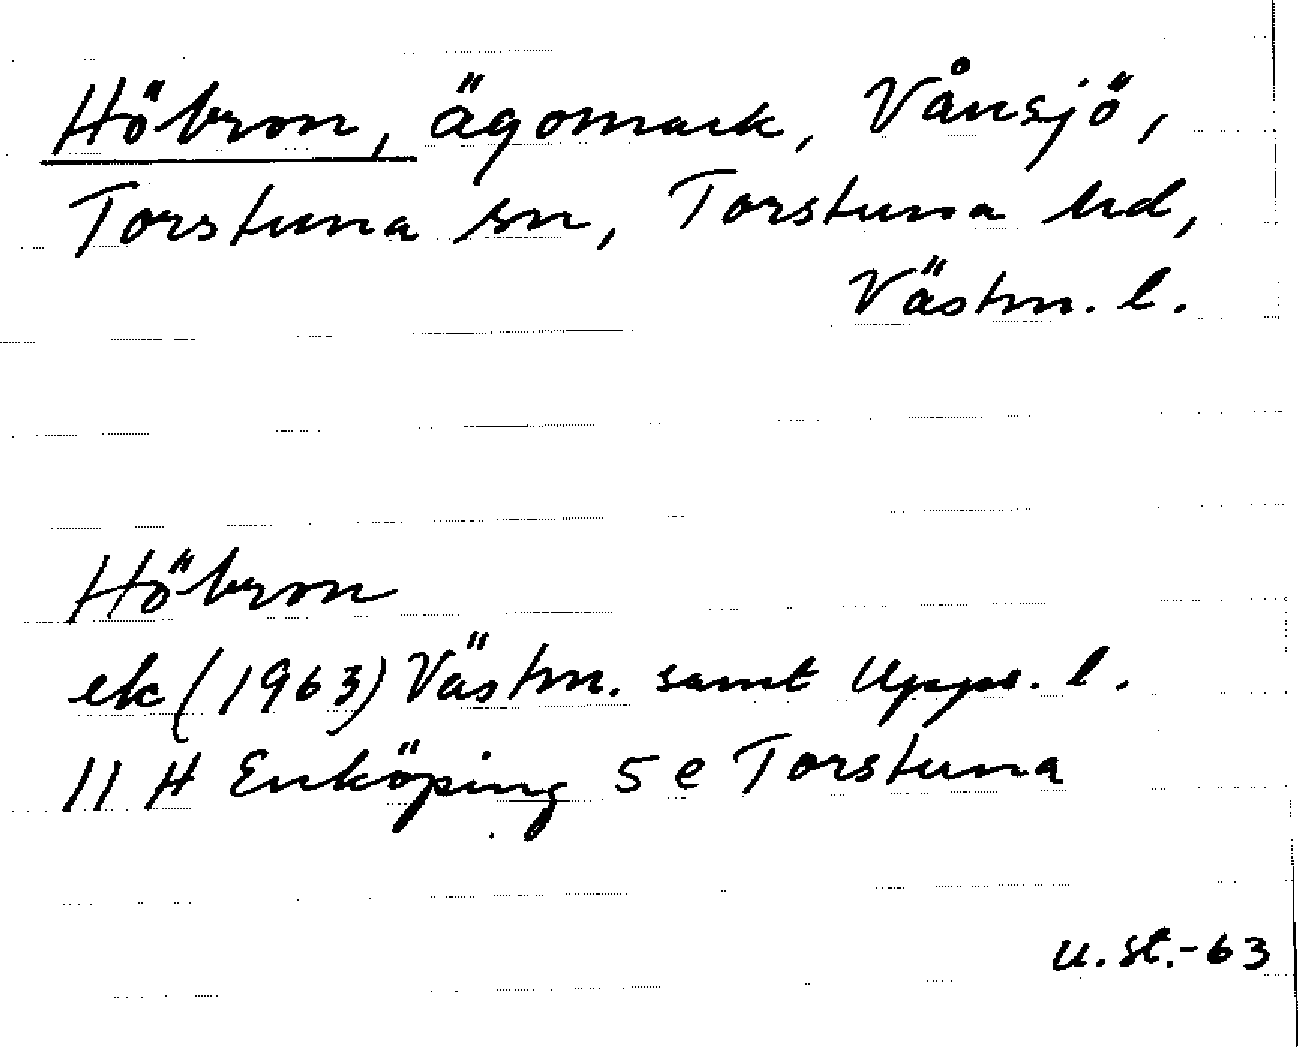 Höbron, ägomark, Vånsjö,
Torstuna sn, Torstuna hd,
Västm. l.
Höbron
ek (1963) Västm. samt Upps. l.
11 H Enköping 5 e Torstuna
u. st.-63